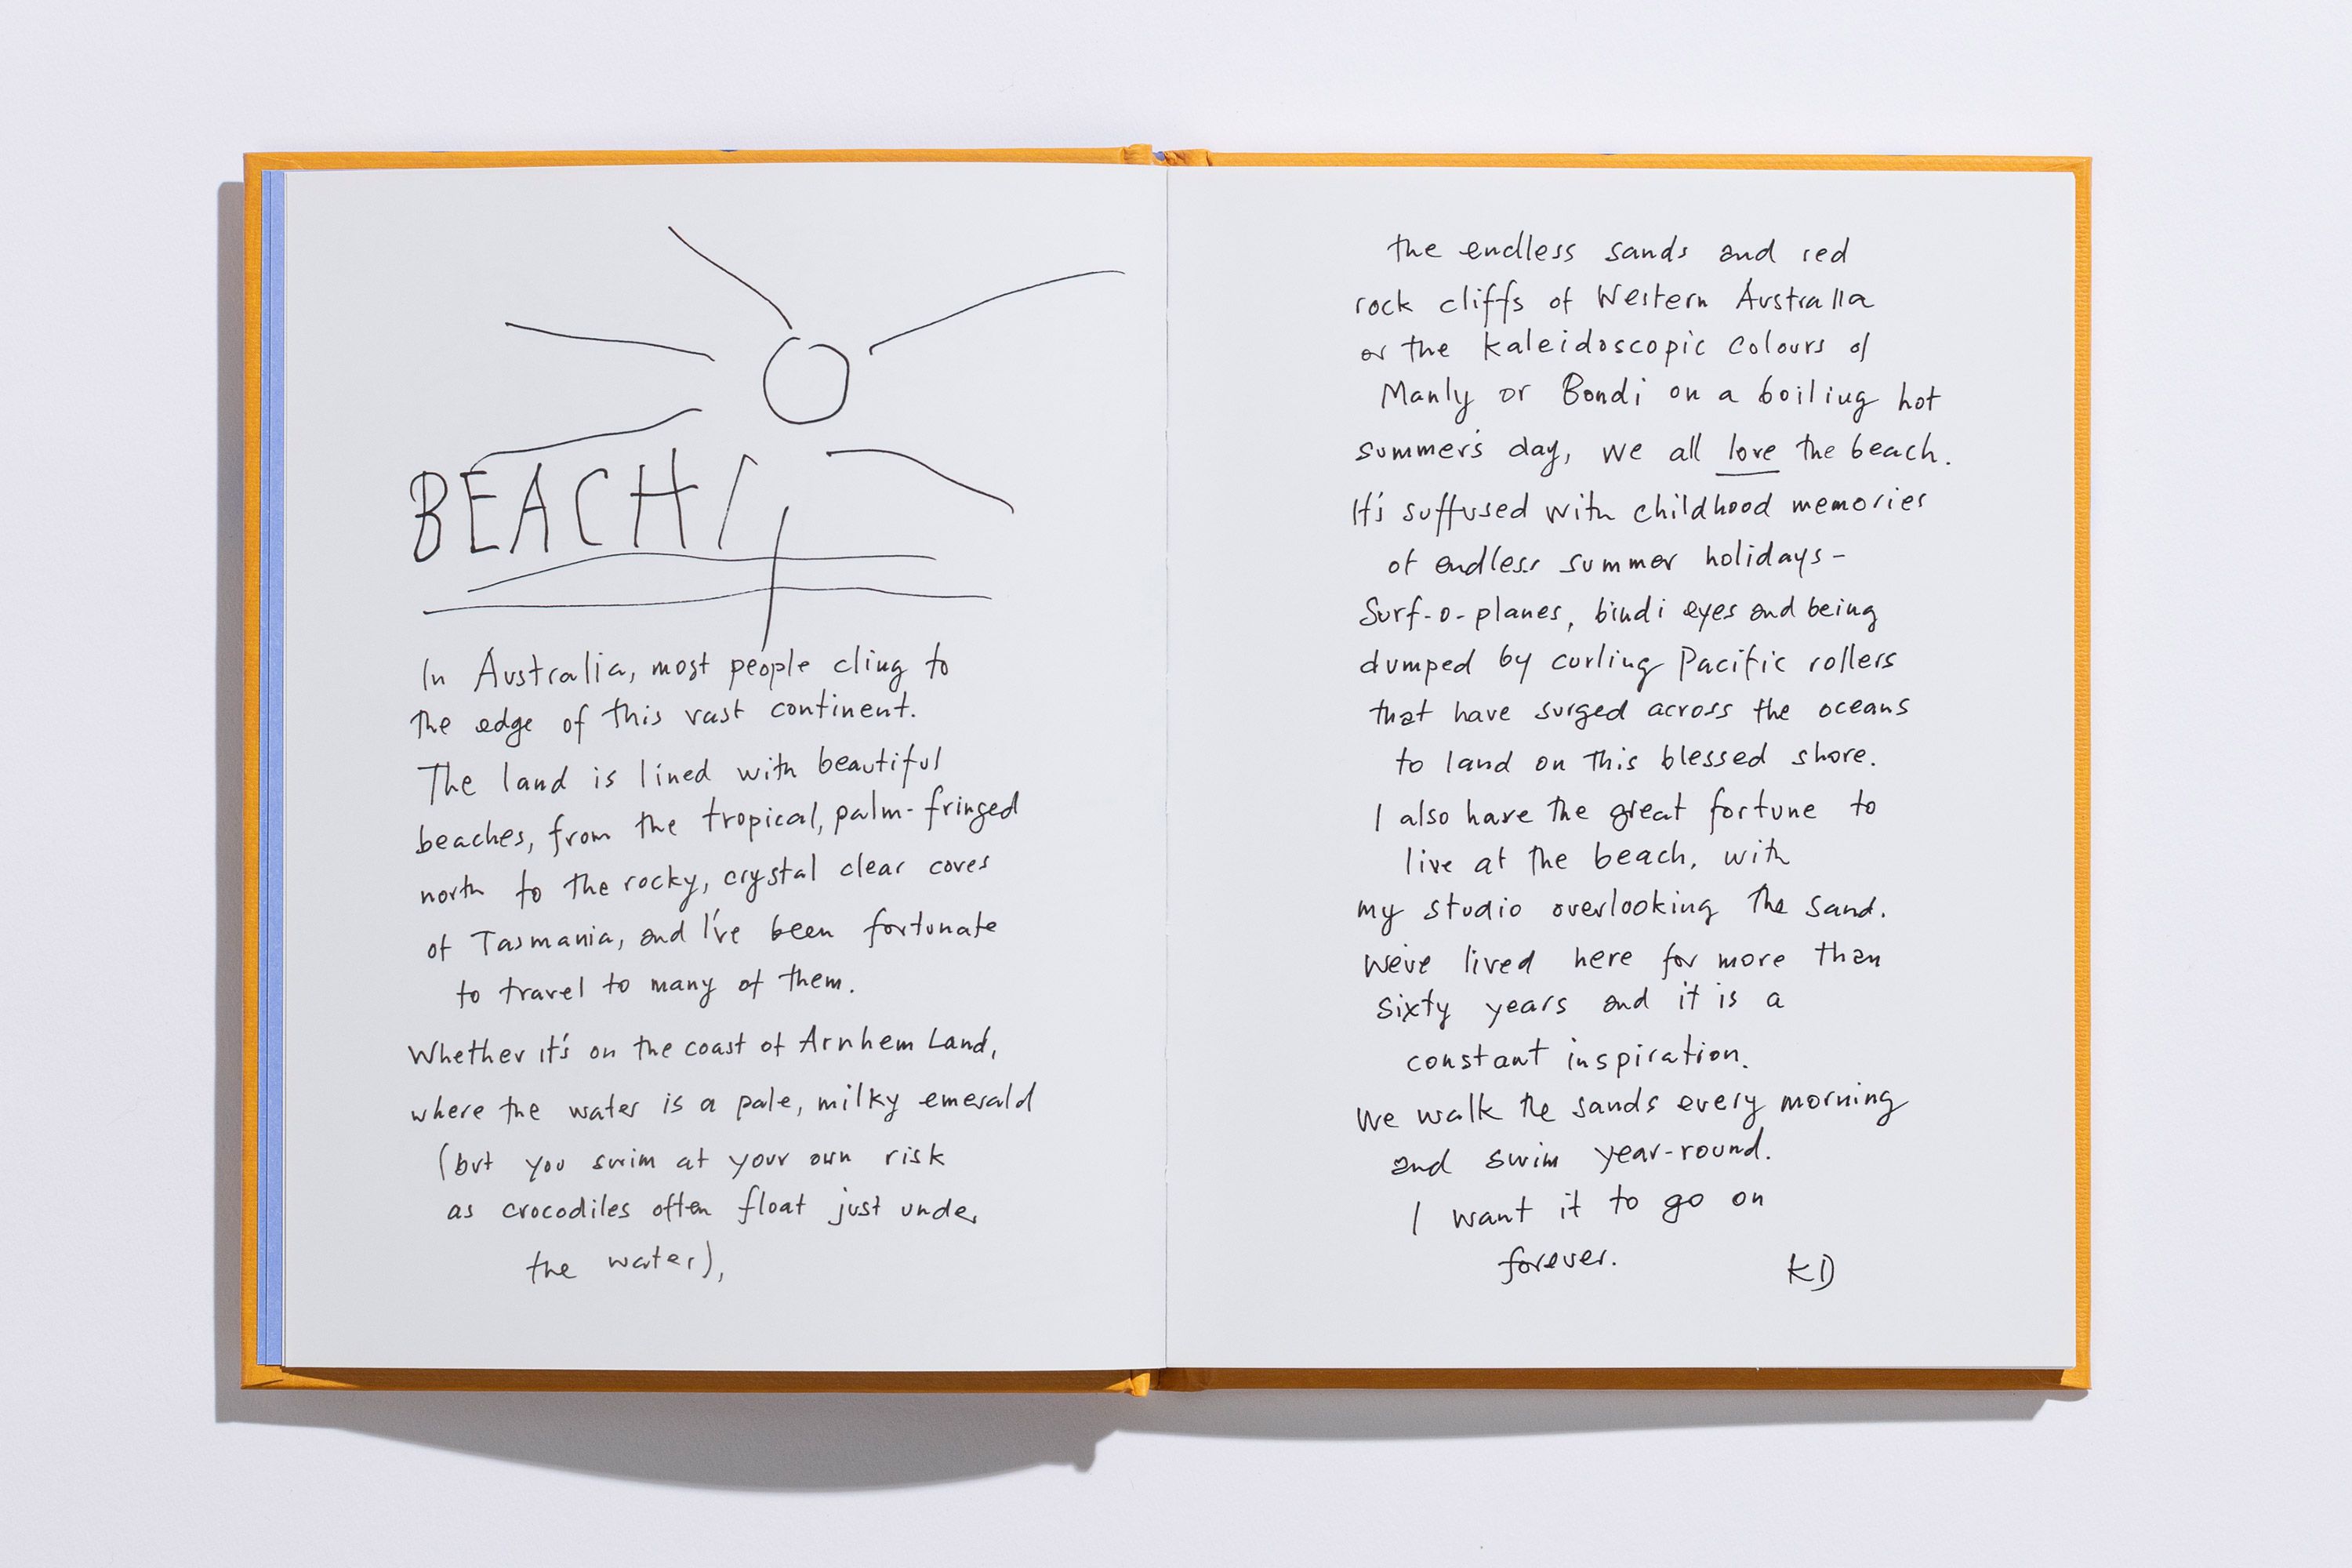 BEACH/
In Australia, most people cling to
the edge of this vast continent.
The land is lined with beautiful
beaches, from the tropical, palm-fringed
north to the rocky, crystal clear coves
of Tasmania, and I've been fortunate
to travel to many of them.
Whether it's on the coast of Arnhem Land,
where the water is a pale, milky emerald
(but you swim at your own risk
as crocodiles often float just under
the water),
the endless sands and red
rock cliffs of Western Australia
or the kaleidoscopic colours of
Manly or Bondi on a boiling hot
summer's day, we all love the beach.
It's suffused with childhood memories
of endless summer holidays -
Surf-o-planes, bindi eyes and being
dumped by curling Pacific rollers
that have surged across the oceans
to land on this blessed shore.
I also have the great fortune to
live at the beach, with
my studio overlooking the sand.
We've lived here for more than
sixty years and it is a
constant inspiration.
We walk the sands every morning
and swim year-round.
I want it to go on
forever.
KD